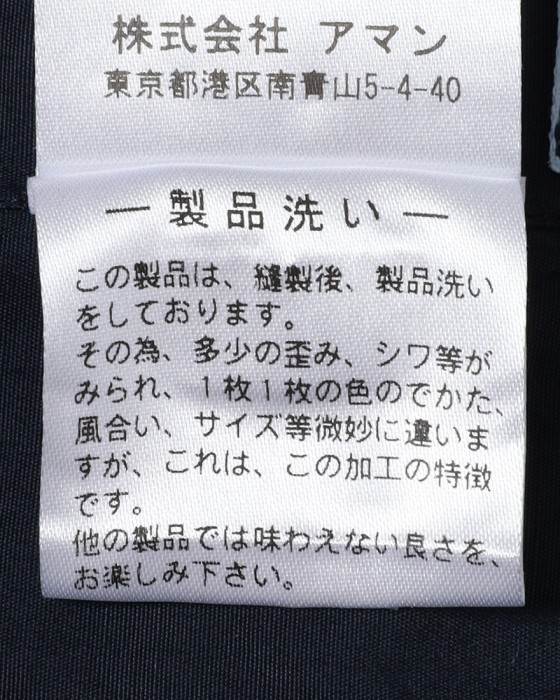 株式会社 アマン
東京都港区南青山5-4-40
― 製品洗い ―
この製品は、縫製後、製品洗い
をしております。
その為、多少の歪み、シワ等が
みられ、1枚1枚の色のでかた、
風合い、サイズ等微妙に違いま
すが、これは、この加工の特徴
です。
他の製品では味わえない良さを、
お楽しみ下さい。